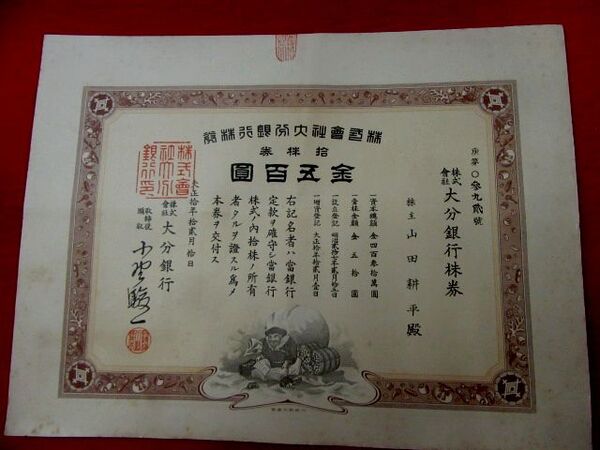 株式會社大分銀行株券
拾株券
金五百圓
庚第〇参九貳號
株式會社 大分銀行株券
株主 山田耕平殿
一資本總額 金四百参拾萬圓
一壹株金額 金五拾圓
一設立登記
一増資登記 大正拾年拾貳月壹日
右記名者ハ當銀行
定款ヲ確守シ當銀行
株式ノ内拾株ノ所有
者タルヲ證スル爲メ
本券ヲ交付ス
大正拾年拾貳月拾日
株式會社 大分銀行
取締役頭取
株式會社大分銀行印